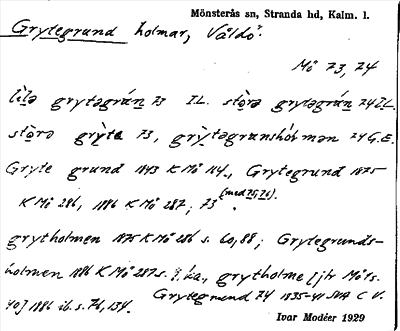 Mönsterås sn, Stranda hd, Kalm. l.
Grytegrund holmar, Väldö.
Mö 73, 74
lìlə grytəgrún 73 I.L. stòrə grytəgrún 74 I.L.
stòrə grỳte 73, grỳtəgrunshólmən 74 G.E.
Gryte grund 1843 K Mö 114, Grytegrund 1875
K Mö 286, 1886 K Mö 287; 73 (med 75, 76).
grytholmen 1875 K Mö 286 s. 60, 88; Grytegrunds-
holmen 1886 K Mö 287 s. , grytholme [jfr Mö ts.
40] 1886 ib. s. 76, 134.
Grytegrund 74 1835-41 C V.
Ivar Modéer 1929